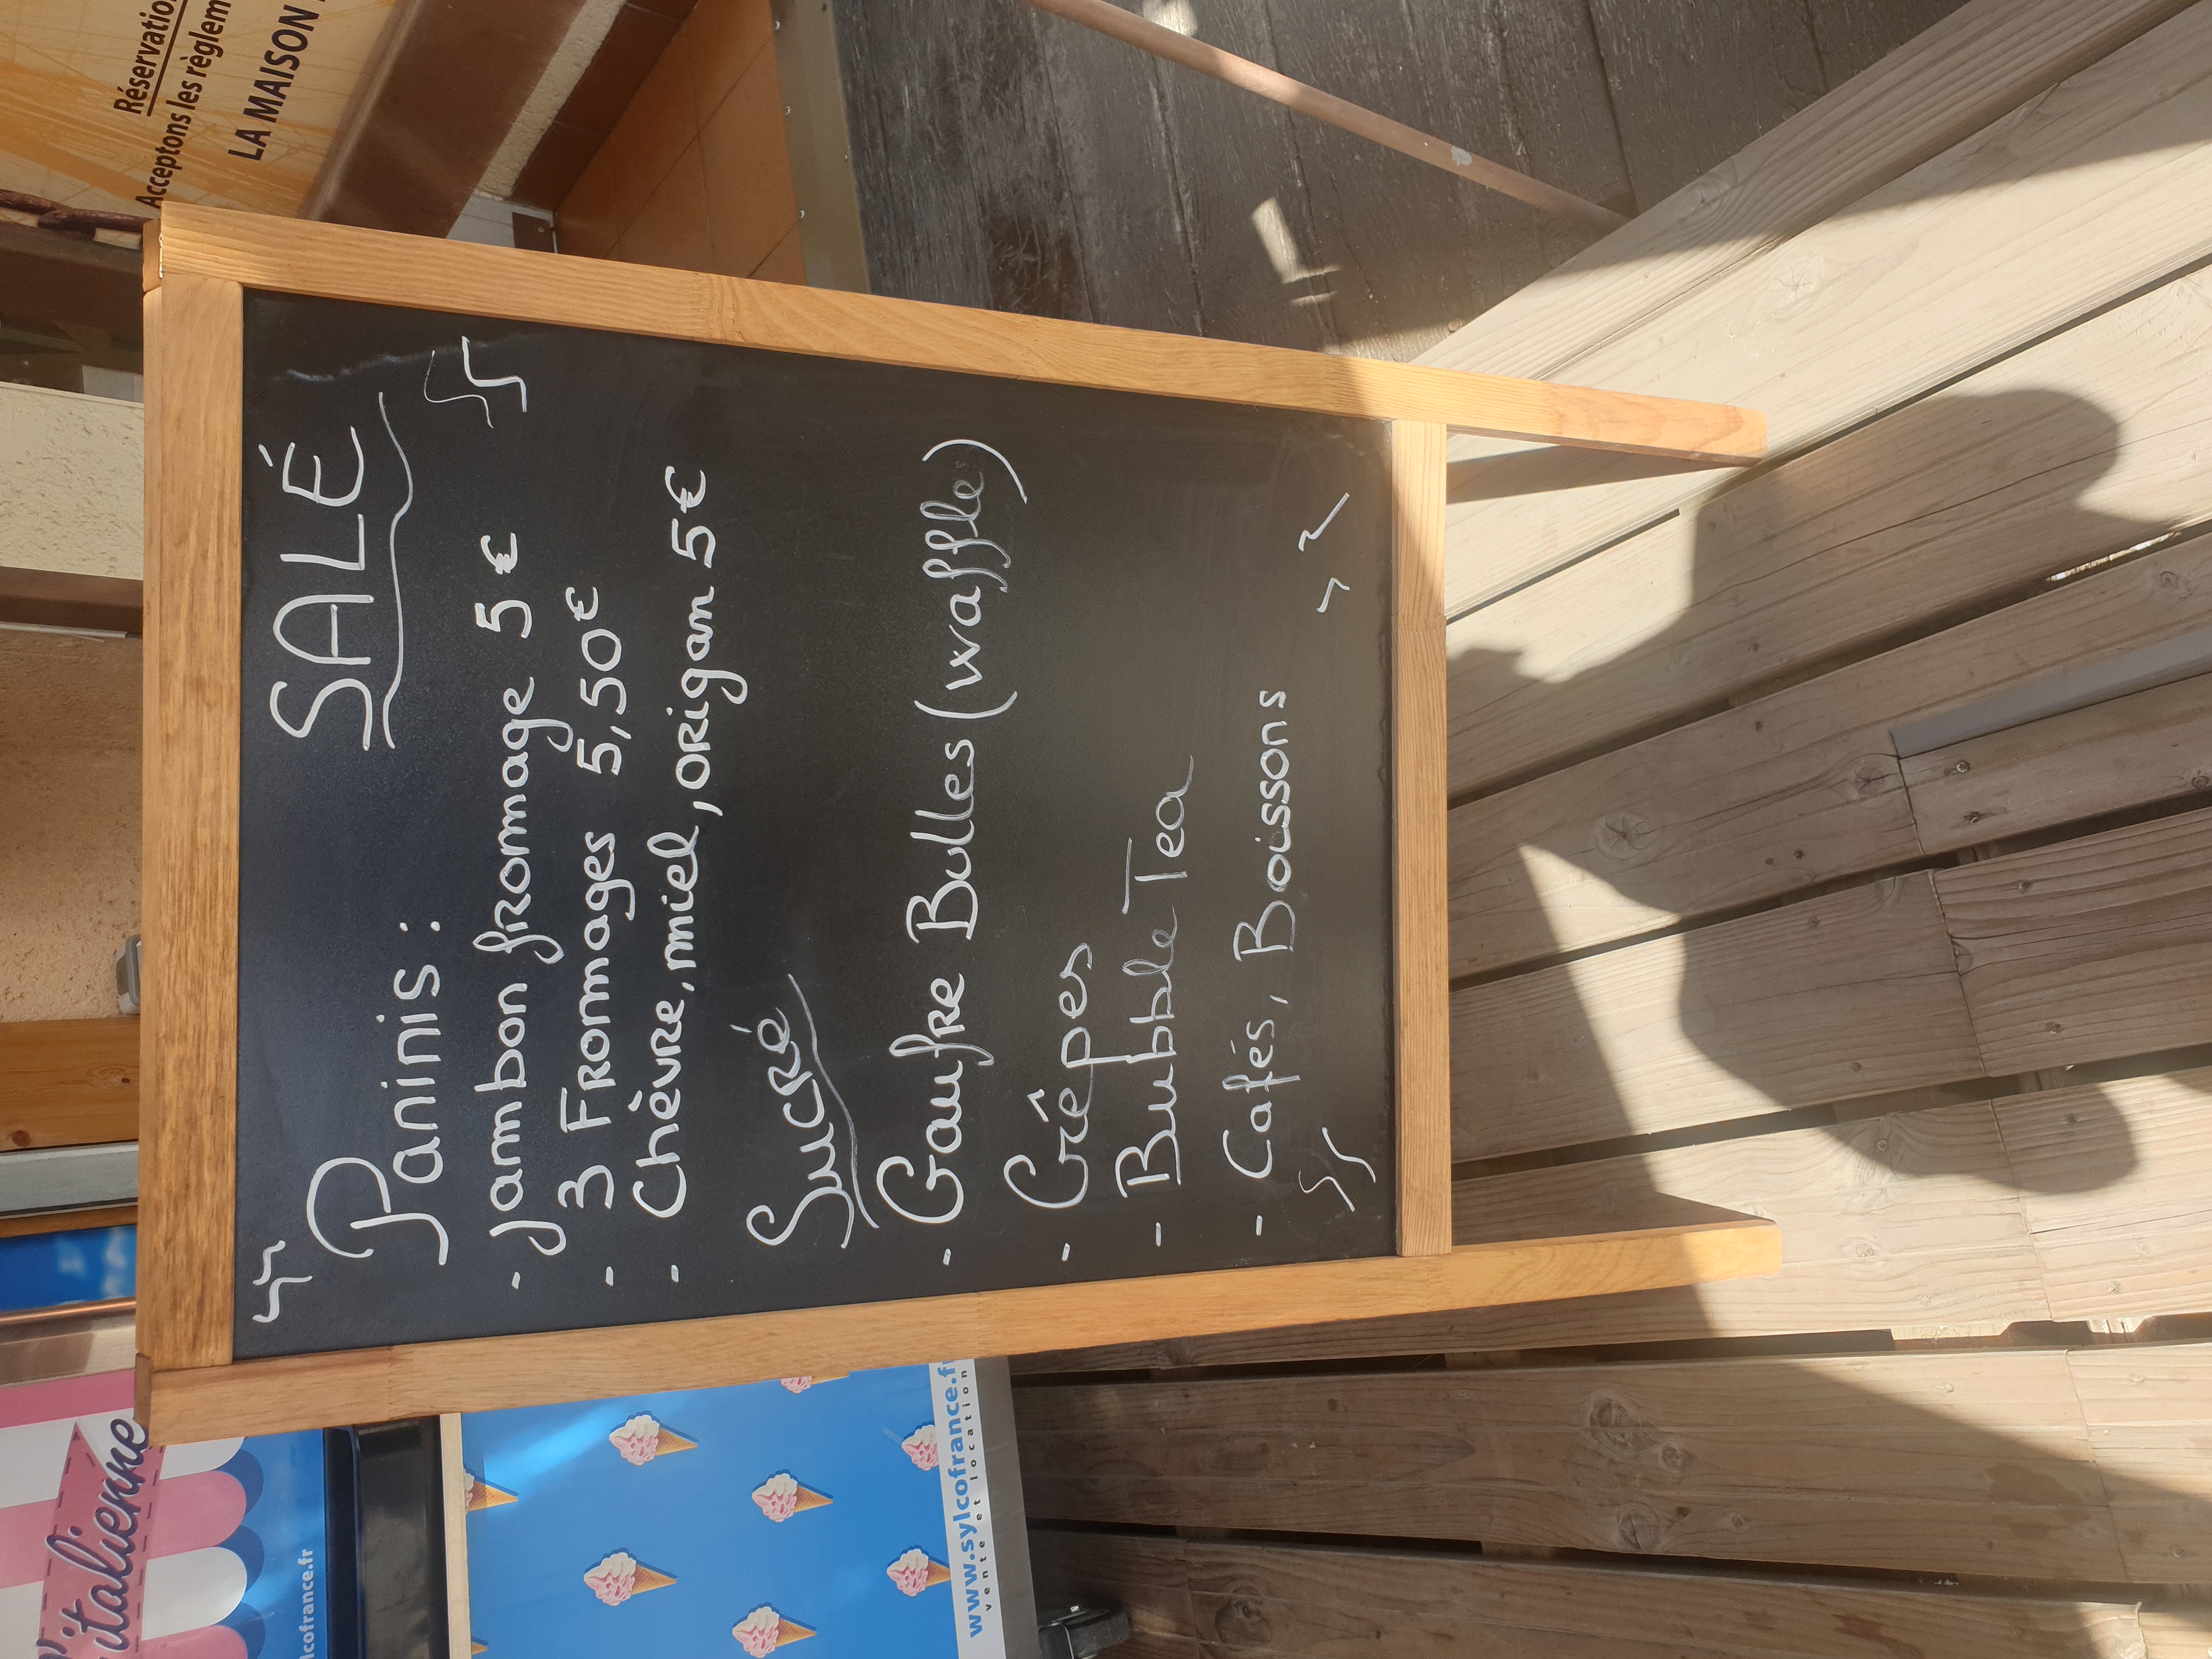 SALÉ
Paninis:
- Jambon fromage 5€
- 3 Fromages 5,50€
- Chèvre, miel, origan 5€
Sucré
- Gaufre Bulles (waffle)
- Crêpes
- Bubble Tea
- Cafés, Boissons
Réservatio
Acceptons les règlem
LA MAISON
l'italienne
ncofrance.fr
www.sylcofrance.fr
vente et location